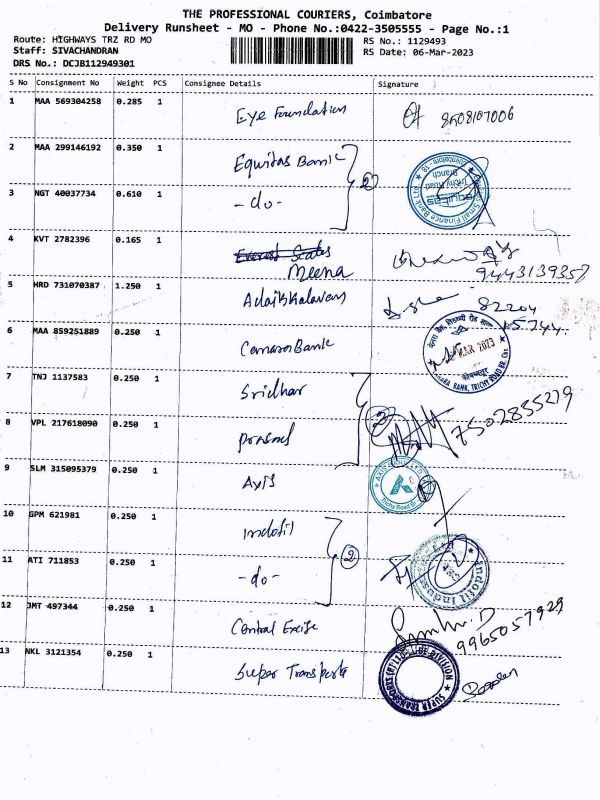 THE PROFESSIONAL COURIERS, Coimbatore
Delivery Runsheet - MO - Phone No.:0422-3505555 - Page No.:1
Route: HIGHWAYS TRZ RD MO
RS No.: 1129493
Staff: SIVACHANDRAN
RS Date: 06-Mar-2023
DRS No.: DCJB112949301
S No Consignment No Weight PCS Consignee Details Signature
1 MAA 569304258 0.285 1 Eye Foundation 8508107006
2 MAA 299146192 0.350 1 Equitas Bank
3 NGT 40037734 0.610 1 -do- 2
4 KVT 2782396 0.165 1 Meena 9443139357
5 HRD 731070387 1.250 1 82204
15744
6 MAA 859251889 0.250 1 Canara Bank
MAR 2023
BANK, TRICHY ROAD BR.
7 TNJ 1137583 0.250 1 Sridhar
8 VPL 217618090 0.250 1 2 7502855279
9 SLM 315095379 0.250 1 Axis
10 GPM 621981 0.250 1 Indofil
11 ATI 711853 0.250 1 -do- 2
12 JMT 497344 0.250 1 Central Excise 9965057929
13 NKL 3121354 0.250 1 Super Transports